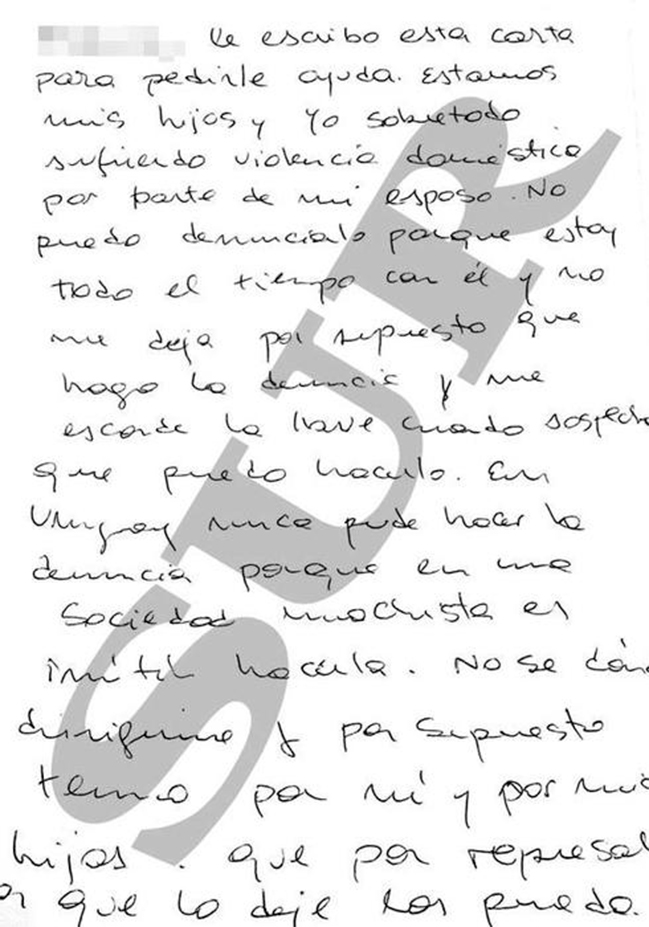 Le escribo esta carta
para pedirle ayuda. Estamos
mis hijos y yo sobretodo
sufriendo violencia doméstica
por parte de mi esposo. No
puedo denuncialo porque estoy
todo el tiempo con él y no
me deja por supuesto que
haga la denuncia y me
esconde la llave cuando sospecha
que puedo hacerlo. En
Uruguay nunca pude hacer la
denuncia porque en una
sociedad machista es
inútil hacerla. No se dón
dirigirme y por supuesto
temo por mí y por mis
hijos. que por represal
que lo deje nos pueda.
SUR